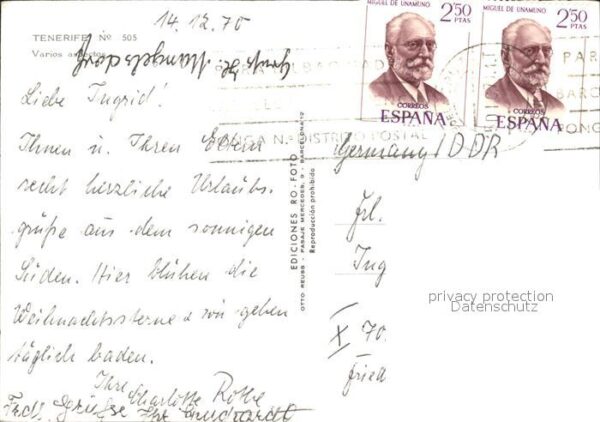 14.12.70
TENERIFE Nº 505
Varios aspectos
Liebe Ingrid!
Ihnen u. Ihren Eltern
recht herzliche Urlaubs-
grüße aus dem sonnigen
Süden. Hier blühen die
Weihnachtssterne u wir gehen
täglich baden.
Ihre Charlotte Rothe
EDICIONES RO-FOTO
OTTO REUSS - PASAJE MERCEDES, 9 - BARCELONA
Reproducción prohibida
MIGUEL DE UNAMUNO
2'50
PTAS
CORREOS
ESPAÑA
MIGUEL DE UNAMUNO
2'50
PTAS
CORREOS
ESPAÑA
PONGA N.º DISTRITO POSTAL
PAR
BARC
PONG
Germany / DDR
Frl.
Ing
X 70
fried
privacy protection
Datenschutz